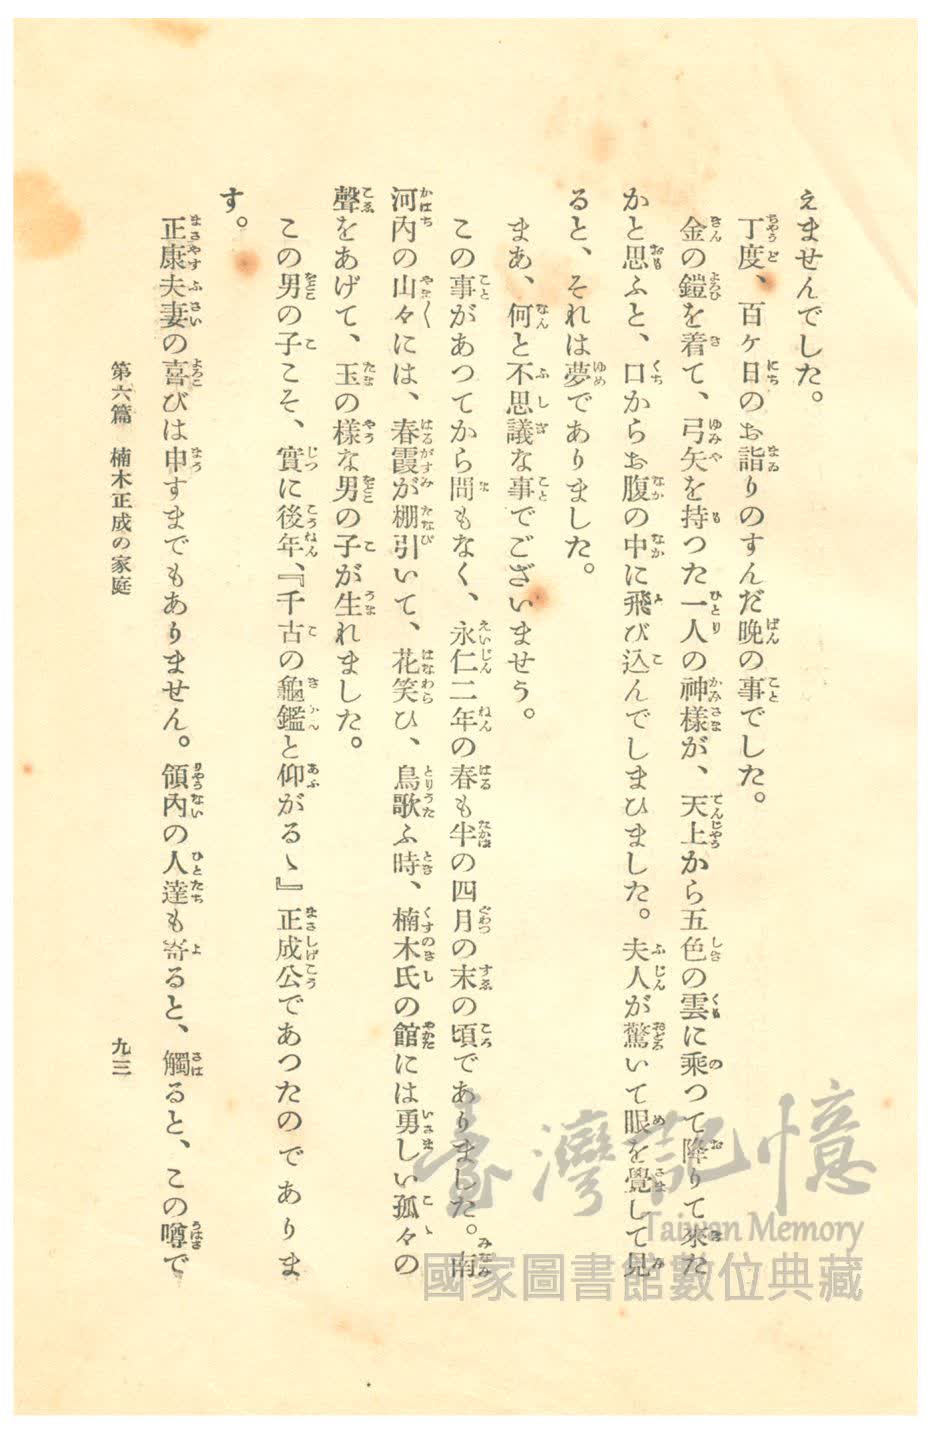 えませんでした。
丁度、百ケ日のお詣りのすんだ晩の事でした。
金の鎧を着て、弓矢を持つた一人の神樣が、天上から五色の雲に乘つて降りて來た
かと思ふと、口からお腹の中に飛び込んでしまひました。夫人が驚いて眼を覺して見
ると、それは夢でありました。
まあ、何と不思議な事でございませう。
この事があつてから間もなく、永仁二年の春も半の四月の末の頃でありました。南
河内の山々には、春霞が棚引いて、花笑ひ、鳥歌ふ時、楠木氏の館には勇しい孤々の
聲をあげて、玉の樣な男の子が生れました。
この男の子こそ、實に後年、『千古の龜鑑と仰がるゝ』正成公であつたのでありま
す。
正康夫妻の喜びは申すまでもありません。領內の人達も寄ると、觸ると、この噂で
第六篇 楠木正成の家庭
九三
臺灣記憶
Taiwan Memory
國家圖書館數位典藏